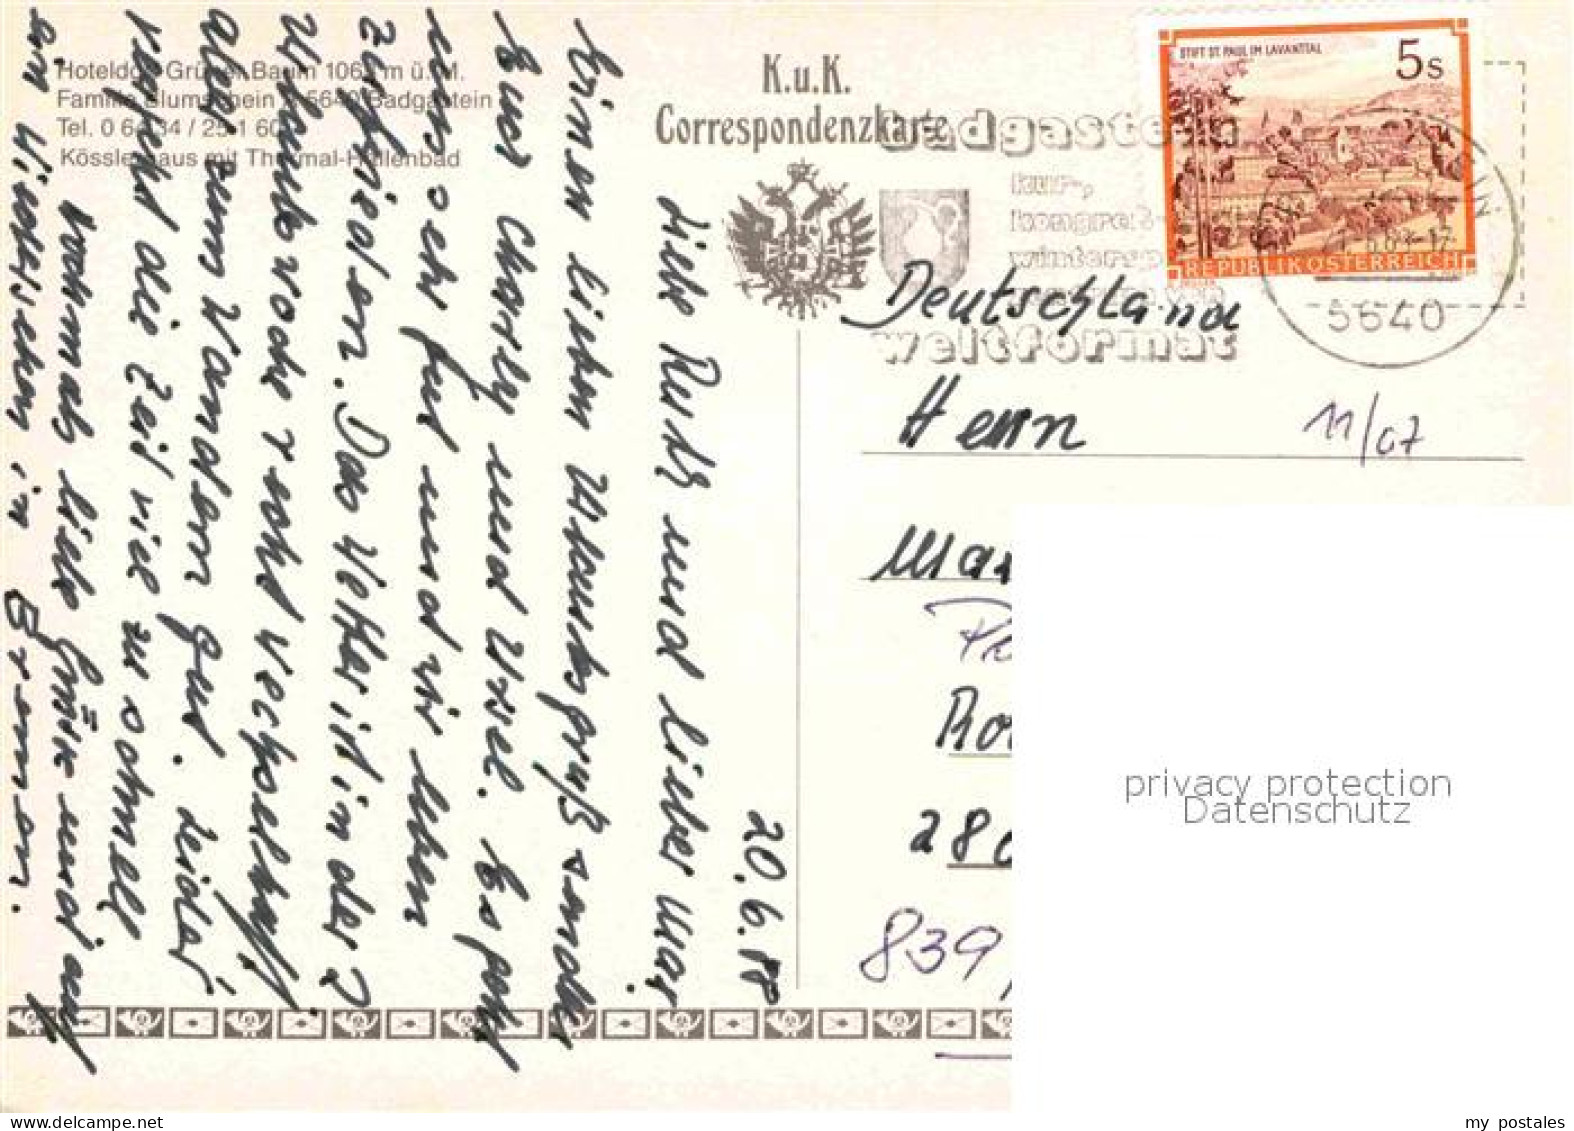 Hoteldorf Grüner Baum 1065 m ü. M.
Familie Blumschein A-5640 Badgastein
Tel. 0 64 34 / 25 1 60
Kösslerhaus mit Thermal-Hallenbad
K.u.K.
Correspondenzkarte
badgastein
kur-,
kongreß-
wintersp
weltformat
STIFT ST. PAUL IM LAVANTTAL
5 S
REPUBLIK ÖSTERREICH
5640
20.6.88
Liebe Ruth und lieber Max,
Einen lieben Urlaubsgruß sendet
Euch Charly und Ursel. Es geht
uns sehr gut und wir leben
zufrieden. Das Wetter ist in der 2
Urlaubswoche recht wechselhaft
aber zum Wandern gut. Leider
vergeht die Zeit viel zu schnell
Nochmals liebe Grüße und auf
ein Wiedersehen in Bremen.
Deutschland
Herrn
11/07
Mar
Ro
280
839
privacy protection
Datenschutz
my postales